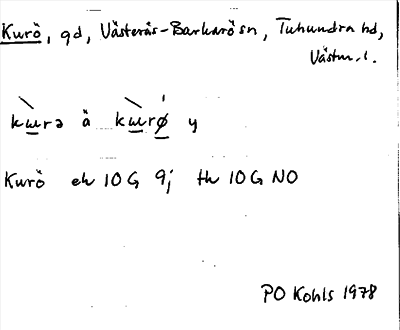 Kurö, gd, Västerås-Barkarö sn, Tuhundra hd,
Västm. l.
kɯrə å kɯrø y
Kurö ek 10 G 9j th 10 G NO
PO Kohls 1978